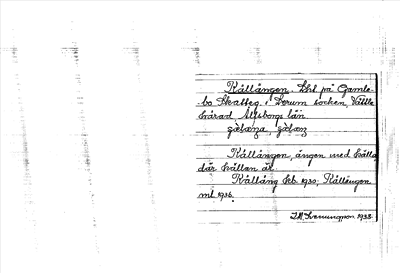 Källängen. Lht på Gamle-
bo Skatteg. i Lerum socken, Vättle
härad Älvsborgs län
Källängen, ängen med källa
där källan är.
Källäng Ekb. 1930; Källängen
ml 1936.
1938